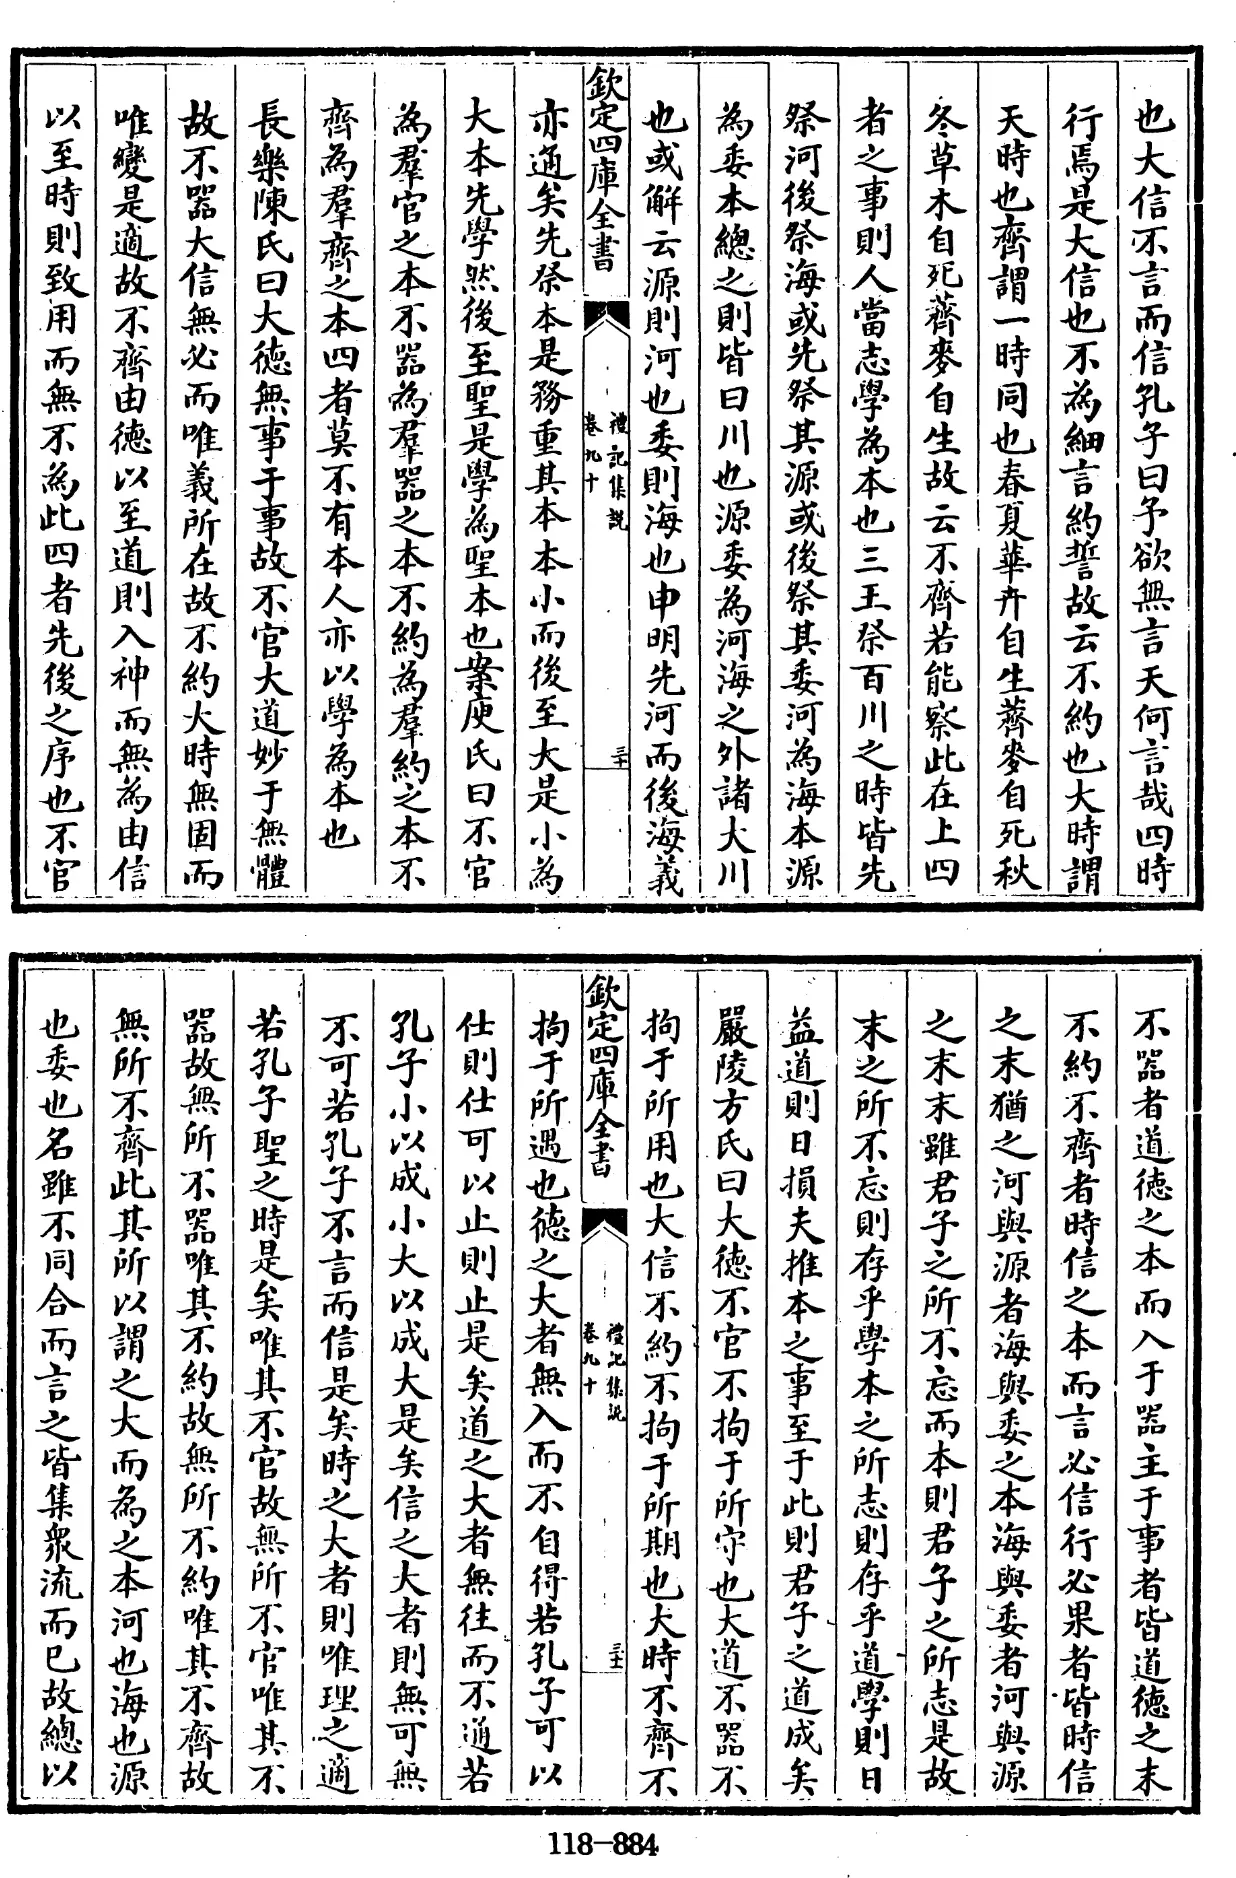 也大信不言而信孔子曰予欲無言天何言哉四時
行焉是大信也不為細言約誓故云不約也大時謂
天時也齊謂一時同也春夏華卉自生薺麥自死秋
冬草木自死薺麥自生故云不齊若能察此在上四
者之事則人當志學為本也三王祭百川之時皆先
祭河後祭海或先祭其源或後祭其委河為海本源
為委本總之則皆曰川也源委為河海之外諸大川
也或解云源則河也委則海也申明先河而後海義
欽定四庫全書
禮記集說
卷九十
三十
亦通矣先祭本是務重其本本小而後至大是小為
大本先學然後至聖是學為聖本也案庾氏曰不官
為羣官之本不器為羣器之本不約為羣約之本不
齊為羣齊之本四者莫不有本人亦以學為本也
長樂陳氏曰大德無事于事故不官大道妙于無體
故不器大信無必而唯義所在故不約大時無固而
唯變是適故不齊由德以至道則入神而無為由信
以至時則致用而無不為此四者先後之序也不官
不器者道德之本而入于器主于事者皆道德之末
不約不齊者時信之本而言必信行必果者皆時信
之末猶之河與源者海與委之本海與委者河與源
之末末雖君子之所不忘而本則君子之所志是故
末之所不忘則存乎學本之所志則存乎道學則日
益道則日損夫推本之事至于此則君子之道成矣
嚴陵方氏曰大德不官不拘于所守也大道不器不
拘于所用也大信不約不拘于所期也大時不齊不
欽定四庫全書
禮記集說
卷九十
三十一
拘于所遇也德之大者無入而不自得若孔子可以
仕則仕可以止則止是矣道之大者無往而不通若
孔子小以成小大以成大是矣信之大者則無可無
不可若孔子不言而信是矣時之大者則唯理之適
若孔子聖之時是矣唯其不官故無所不官唯其不
器故無所不器唯其不約故無所不約唯其不齊故
無所不齊此其所以謂之大而為之本河也海也源
也委也名雖不同合而言之皆集衆流而已故總以
118-884